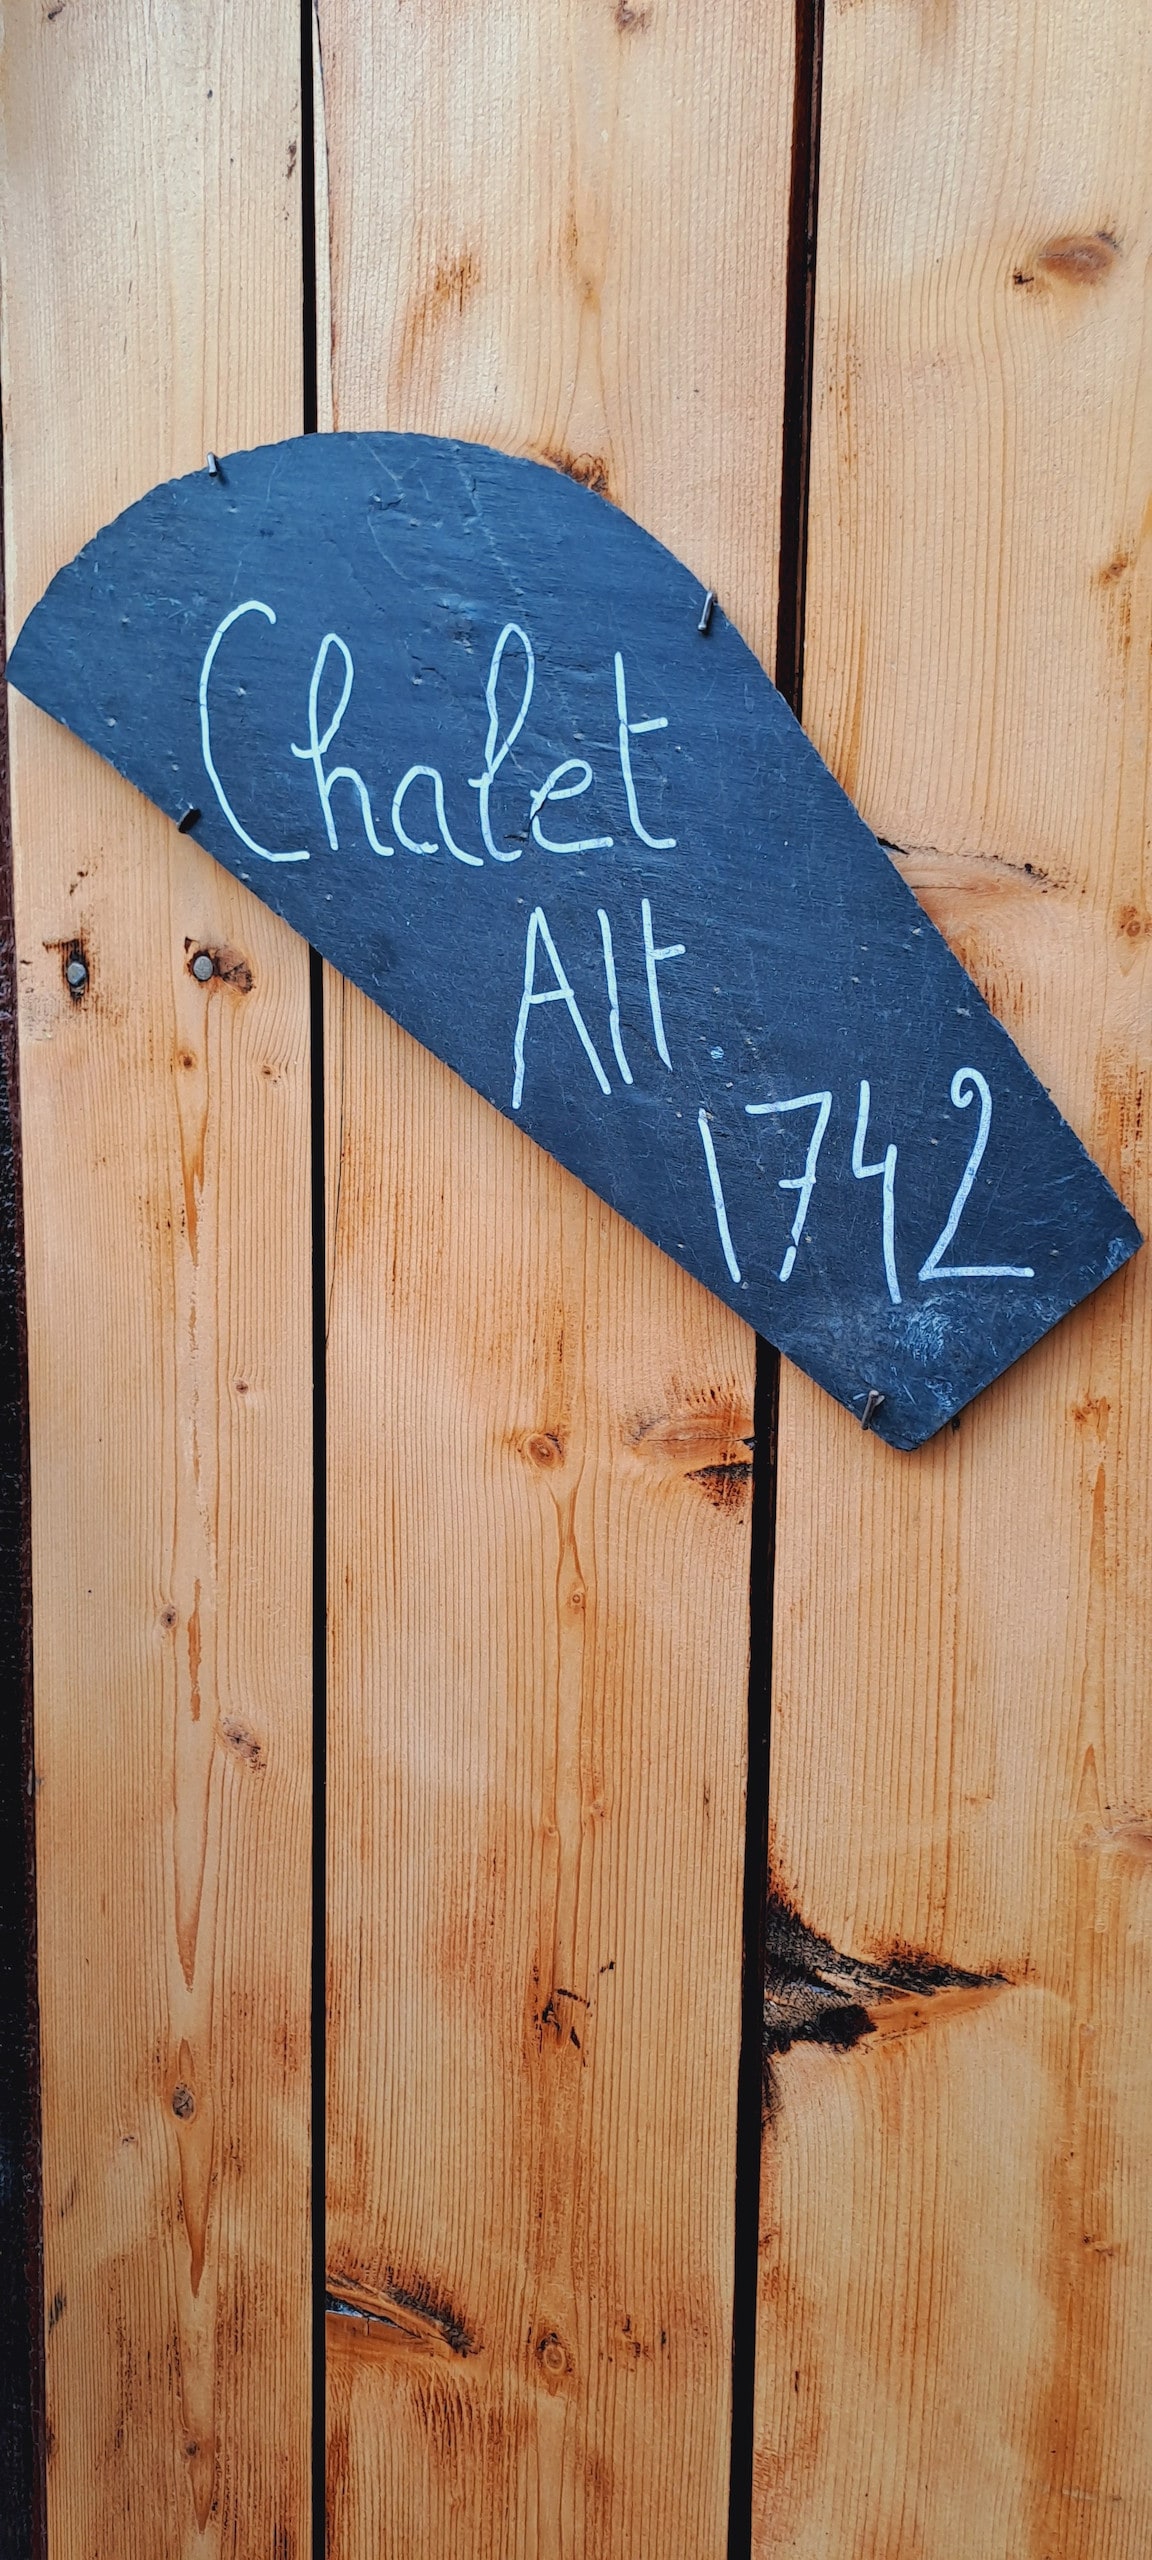 Chalet
Alt
1742